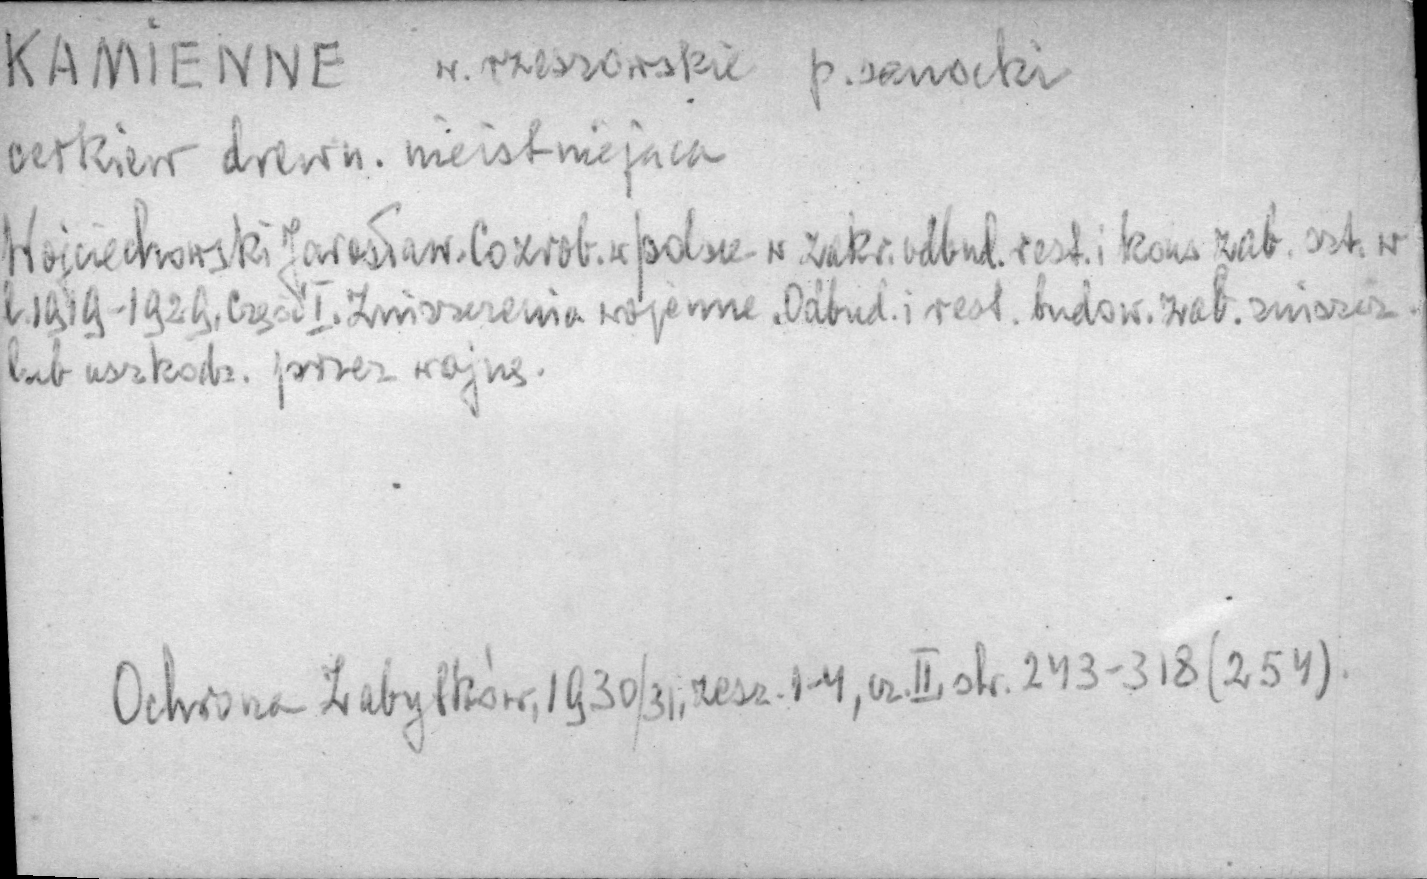 KAMIENNE w. rzeszowskie p. sanocki
cerkiew drewn. nieistniejąca
Wojciechowski Jarosław. Co zrob. w Polsce w zakr. odbud. rest. i kons zab. szt. w
l. 1919-1929. Część I. Zniszczenia wojenne. Odbud. i rest. budow. zab. zniszcz.
lub uszkodz. przez wojnę.
Ochrona Zabytków, 1930/31, zesz. 1-4, cz. II, str. 243-318 (254).